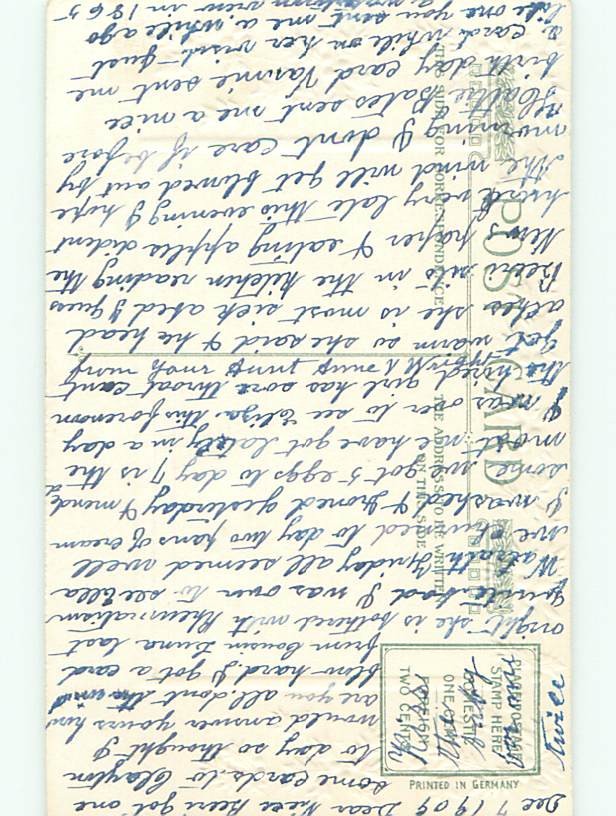 Dec 7 1909 Dear Niece Beeri got one
some cards. to Clayton
to day so thought I
would answer yours how
are you all. dont the wind
blow hard. I got a card
from Cousin Luna last
night she is bothered with Rheumatism
quite bad I was over to see Ella
Friday all seemed well
we churned to day two pans of cream
I washed & Ironed yesterday & mended
some we got 5 eggs to day 7 is the
most we have got lately in a day
I was over to see Eliza this forenoon
the hired girl has sore throat cant
get warm so she said & he head
aches she is most sick abed I guess
Beeri sits in the kitchen reading the
News paper & eating apples dident
very late this evening I hope
the wind will get blowed out by
morning I dont care if before
Hattie Bates sent me a nice
birth day card Vannie sent me
a card while on her visit just
like one you sent me a while ago
in 1865
twice
POST CARD
THIS SIDE FOR CORRESPONDENCE
THE ADDRESS TO BE WRITTEN
ON THIS SIDE
PLACE POSTAGE
STAMP HERE
DOMESTIC
ONE CENT
FOREIGN
TWO CENTS
PRINTED IN GERMANY